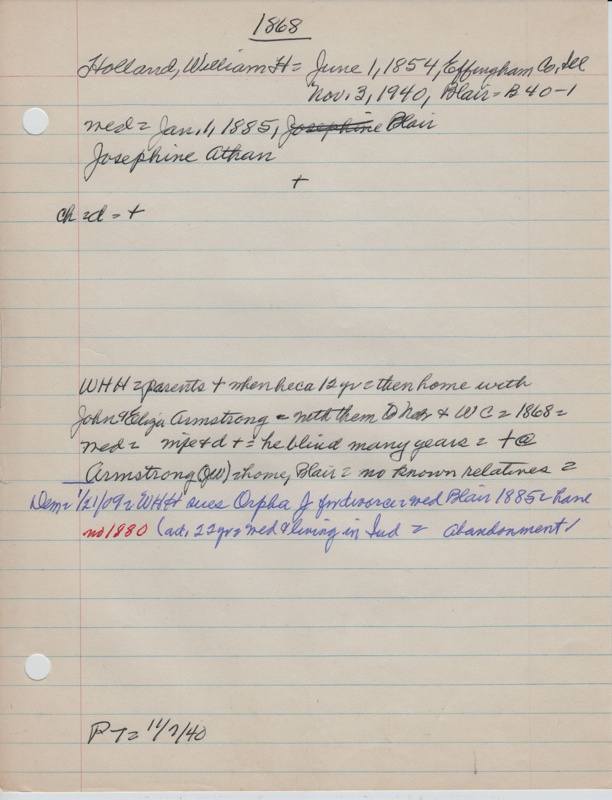 1868
Holland, William H = June 1, 1854, Effingham Co, Ill
Nov. 3, 1940, Blair = B 40-1
med = Jan. 1, 1885, Josephine Blair
Josephine Athan
+
ch = d = +
WHH = parents + when he ca 12 yr = then home with
John & Eliza Armstrong = with them to & WC = 1868 =
med = wife & d + = he blind many years = + @
Armstrong = home, Blair = no known relatives =
Dem = 1/21/09 = WHH sues Orpha J for divorce = med Blair 1885 = have
no 1880 (ad. 22 yr = med & living in Ind = abandonment)
P T = 11/7/40